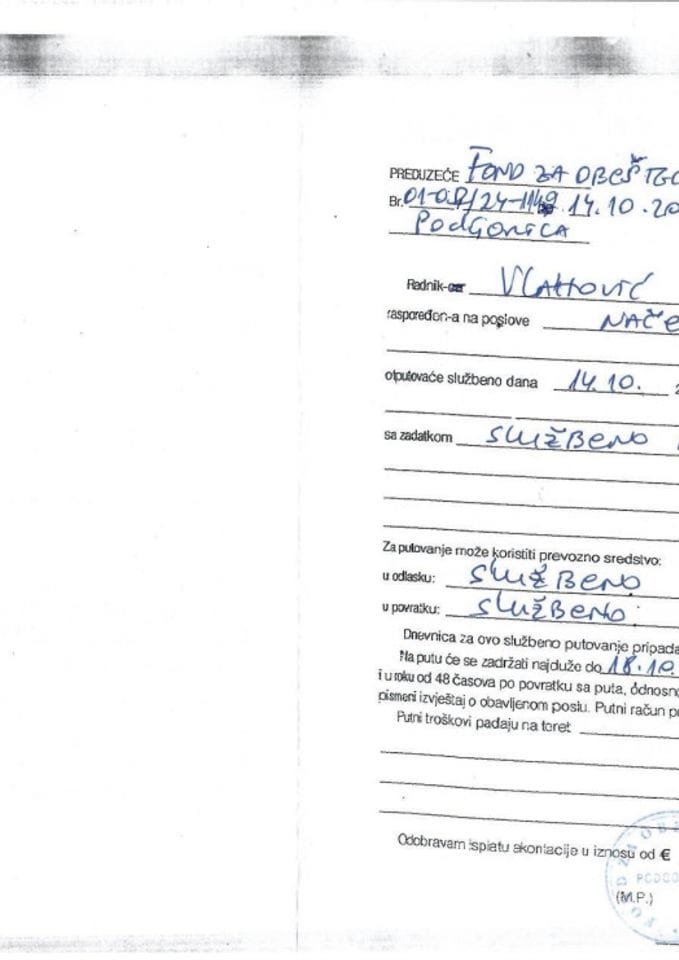 PREDUZEĆE FOND ZA OBEŠTEĆ
Br. 01-02/24-1149 14.10.20
PODGORICA
Radnik-
raspoređen-a na poslove NAČE
otputovaće službeno dana 14.10. 2
sa zadatkom SLUŽBENO
Za putovanje može koristiti prevozno sredstvo:
u odlasku: SLUŽBENO
u povratku: SLUŽBENO
Dnevnica za ovo službeno putovanje pripada
Na putu će se zadržati najduže do 18.10.
i u roku od 48 časova po povratku sa puta, odnosno
pismeni izvještaj o obavljenom poslu. Putni račun p
Putni troškovi padaju na teret
Odobravam isplatu akontacije u iznosu od €
(M.P.)